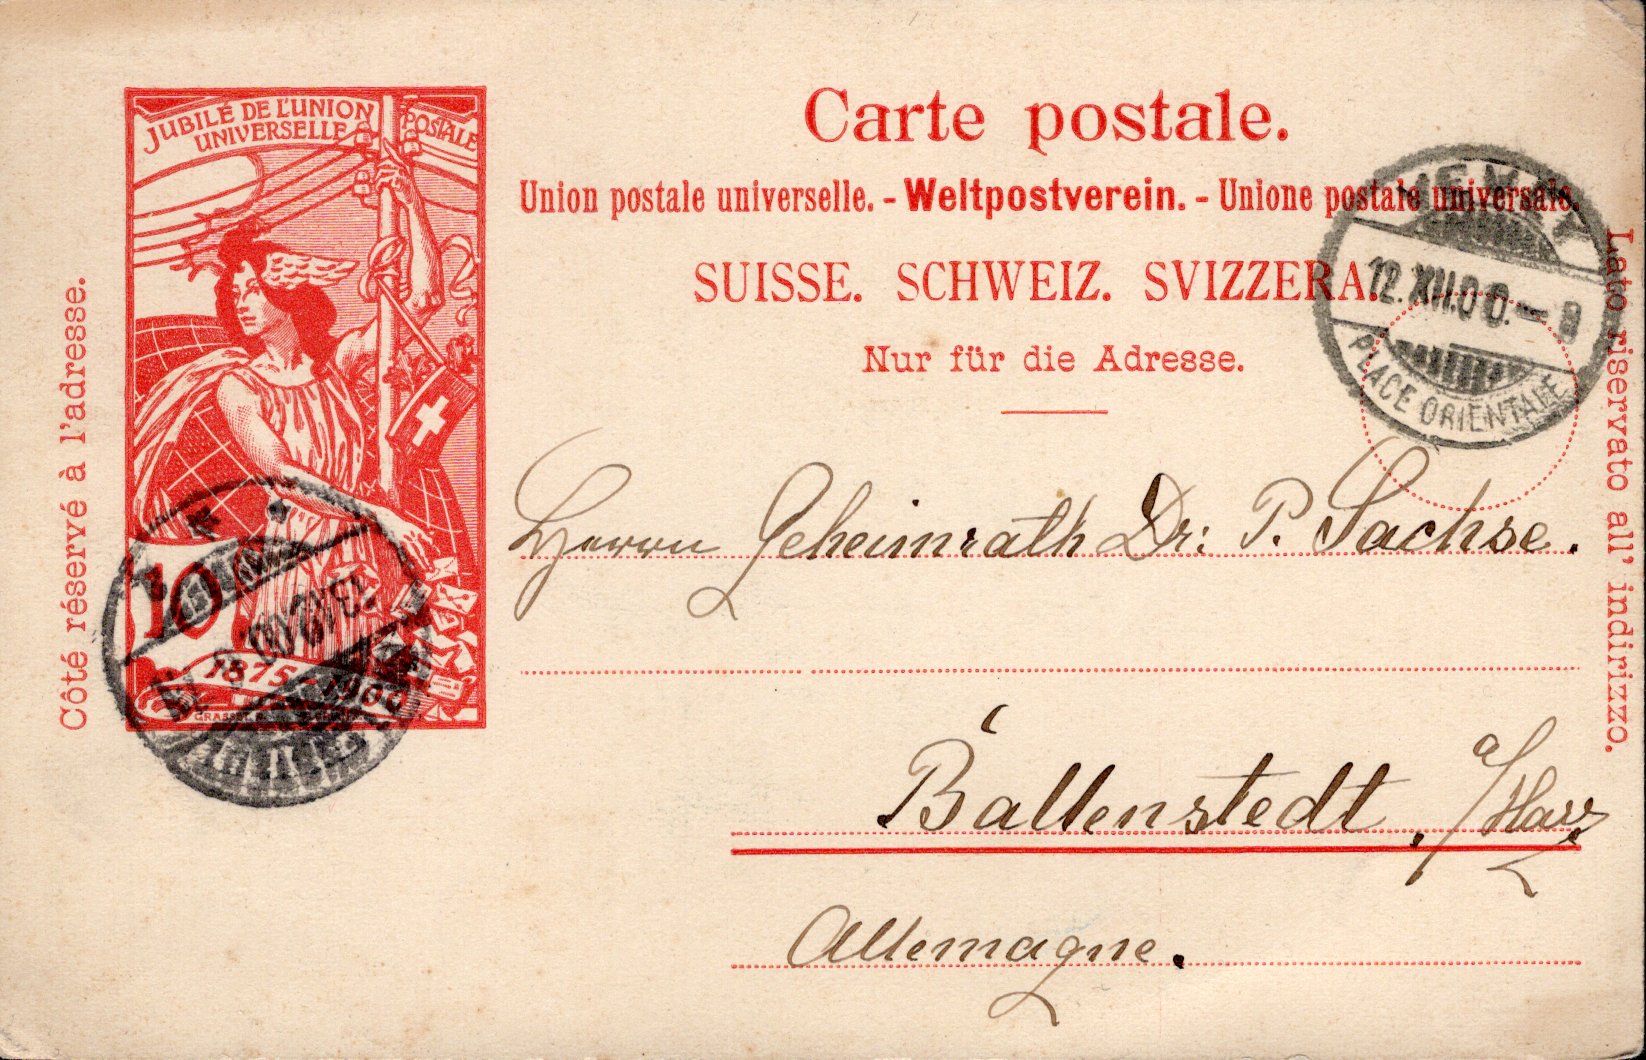 Carte postale.
Union postale universelle. - Weltpostverein. - Unione postale universale.
SUISSE. SCHWEIZ. SVIZZERA.
Nur für die Adresse.
Côté réservé à l'adresse.
Lato riservato all' indirizzo.
JUBILÉ DE L'UNION POSTALE
UNIVERSELLE
10
1875-1900
GRASSET
VEVEY
12.XII.00.-9
PLACE ORIENTALE
13.12.00
Herrn Geheimrath Dr: P. Sachse.
Ballenstedt, a/Harz
Allemagne.